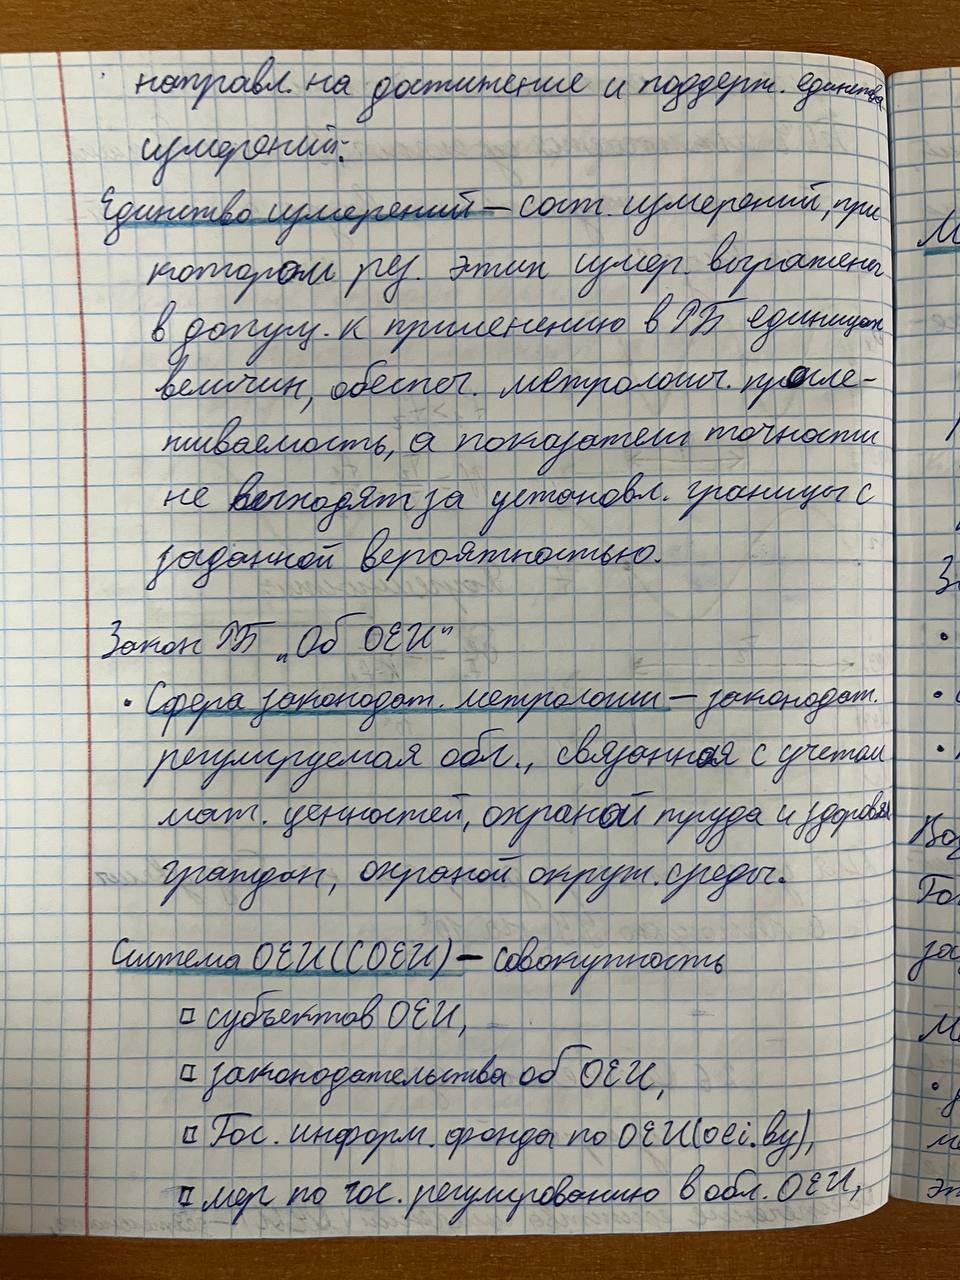 направл. на достижение и поддерж. единства
измерений.
Единство измерений – сост. измерений, при
котором рез. этих измер. выражены
в допущ. к применению в РБ единицах
величин, обеспеч. метрологич. просле-
живаемость, а показатели точности
не выходят за установл. границы с
заданной вероятностью.
Закон РБ „Об ОЕИ"
• Сфера законодат. метрологии – законодат.
регулируемая обл., связанная с учетом
мат. ценностей, охраной труда и здоровья
граждан, охраной окруж. среды.
Система ОЕИ(СОЕИ) – совокупность
▫ субъектов ОЕИ,
▫ законодательства об ОЕИ,
▫ Гос. информ. фонда по ОЕИ(oei.by),
▫ мер по гос. регулированию в обл. ОЕИ,